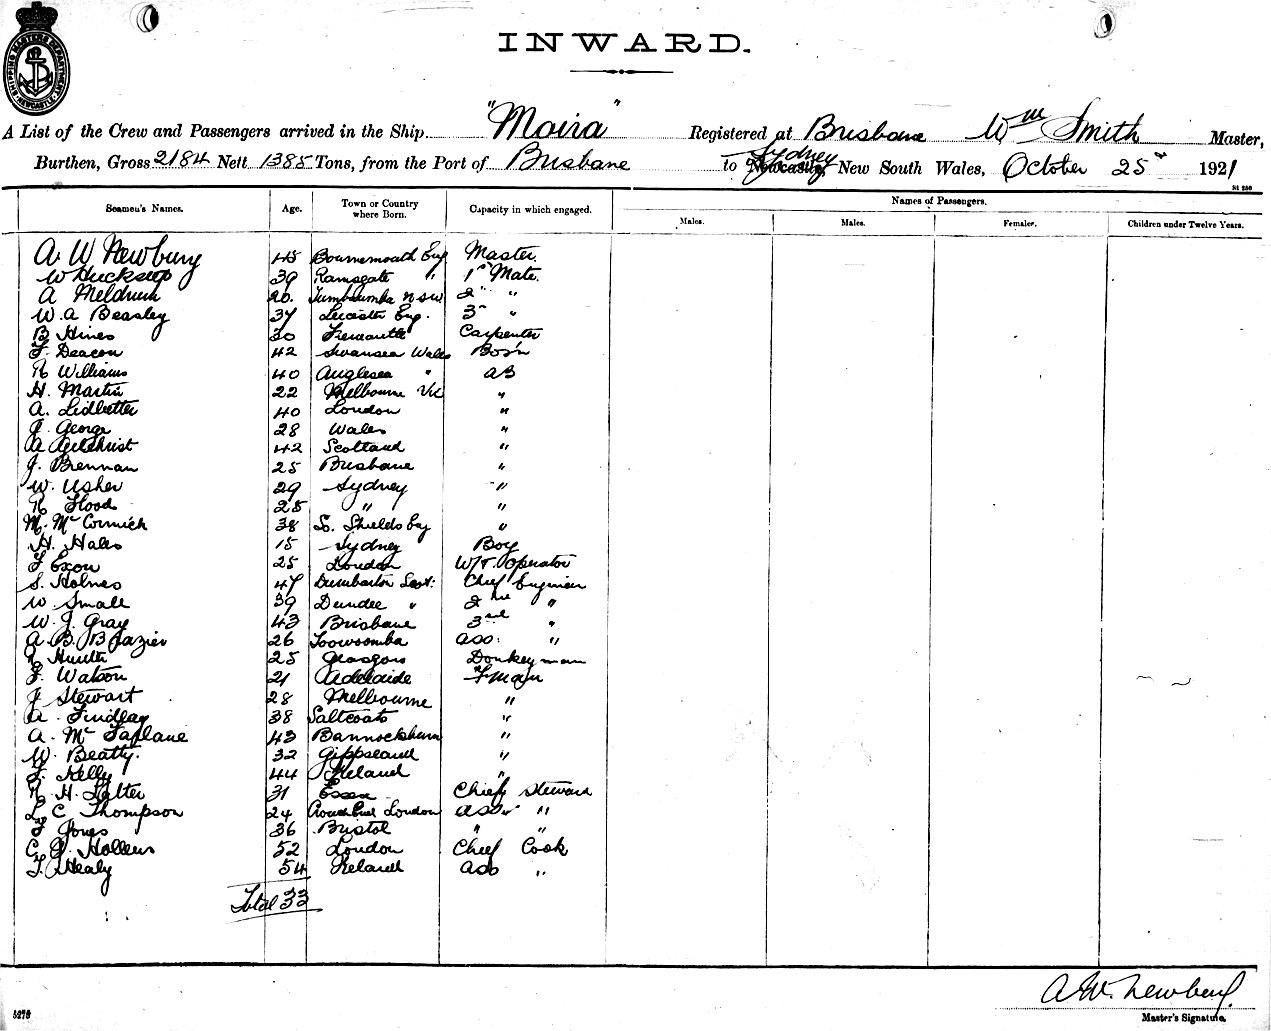 SHIPPING MASTERS DEPARTMENT NEWCASTLE
INWARD.
A List of the Crew and Passengers arrived in the Ship "Moira" Registered at Brisbane Wm Smith Master,
Burthen, Gross 2184 Nett 1385 Tons, from the Port of Brisbane to Newcastle, Sydney New South Wales, October 25 1921
St 250
Seamen's Names. Age. Town or Country where Born. Capacity in which engaged. Names of Passengers.
Males. Males. Females. Children under Twelve Years.
A W Newbury 45 Bournemouth Eng Master.
W Huckstep 39 Ramsgate " 1st Mate.
A Meldrum 20. Tumbarumba NSW 2 " "
W. A Beasley 37 Leicester Eng. 3 "
B Hines 30 Fremantle Carpenter
F. Deacon 42 Swansea Wales Bos'n
R Williams 40 Anglesea " AB
H. Martin 22 Melbourne Vic "
A. Lidbetter 40 London "
J. George 28 Wales "
A Gilchrist 42 Scotland "
J. Brennan 25 Brisbane "
W. Usher 29 Sydney "
R Flood 25 " "
M. McCormick 38 So. Shields Eng "
H. Hales 15 Sydney Boy
F Exon 25 London W/T. Operator
S. Holmes 47 Dumbarton Scot: Chief Engineer
W Small 39 Dundee " 2nd "
W. J. Gray 43 Brisbane 3rd "
A B. Brazier 26 Toowoomba Ass: "
Hunter 25 Glasgow Donkeyman
J. Watson 21 Adelaide F'man
J Stewart 28 Melbourne "
A. Findlay 38 Saltcoats "
A. McFarlane 43 Bannockburn "
W. Beatty. 32 Gippsland "
J. Kelly 44 Ireland "
R. H. Salter 31 Essex Chief Steward
L. C Thompson 24 London Asst "
F Jones 36 Bristol " "
C. J. Hollens 52 London Chief Cook
T. Healy 54 Ireland Ass "
Total 33
A. W. Newbury.
Master's Signature.
5278